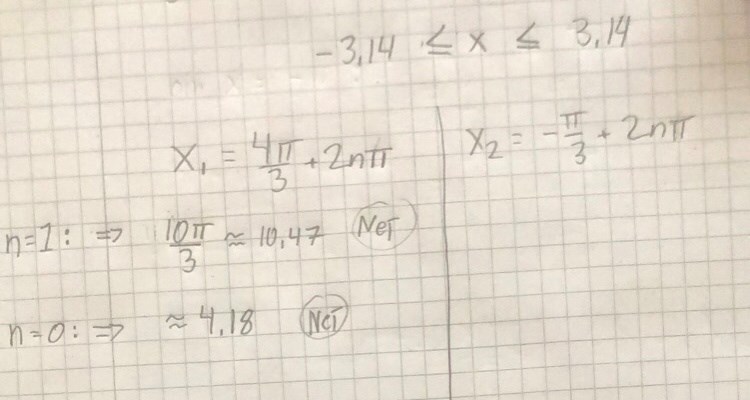 -3,14 ≤ x ≤ 3,14
x₁ = 4π/3 + 2nπ
x₂ = -π/3 + 2nπ
n=1: ⇒ 10π/3 ≈ 10,47 NeJ
n=0: ⇒ ≈ 4,18 NeJ